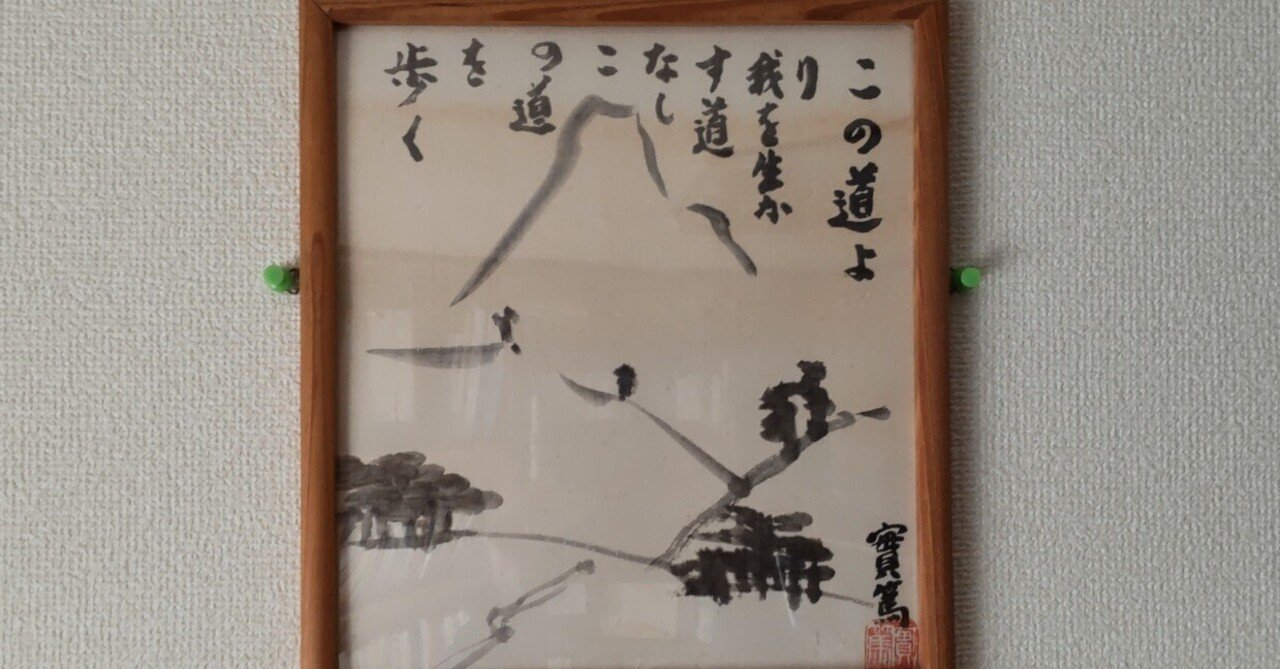 この道よ
り
我を生か
す道
なし
こ
の道
を
歩く
實篤